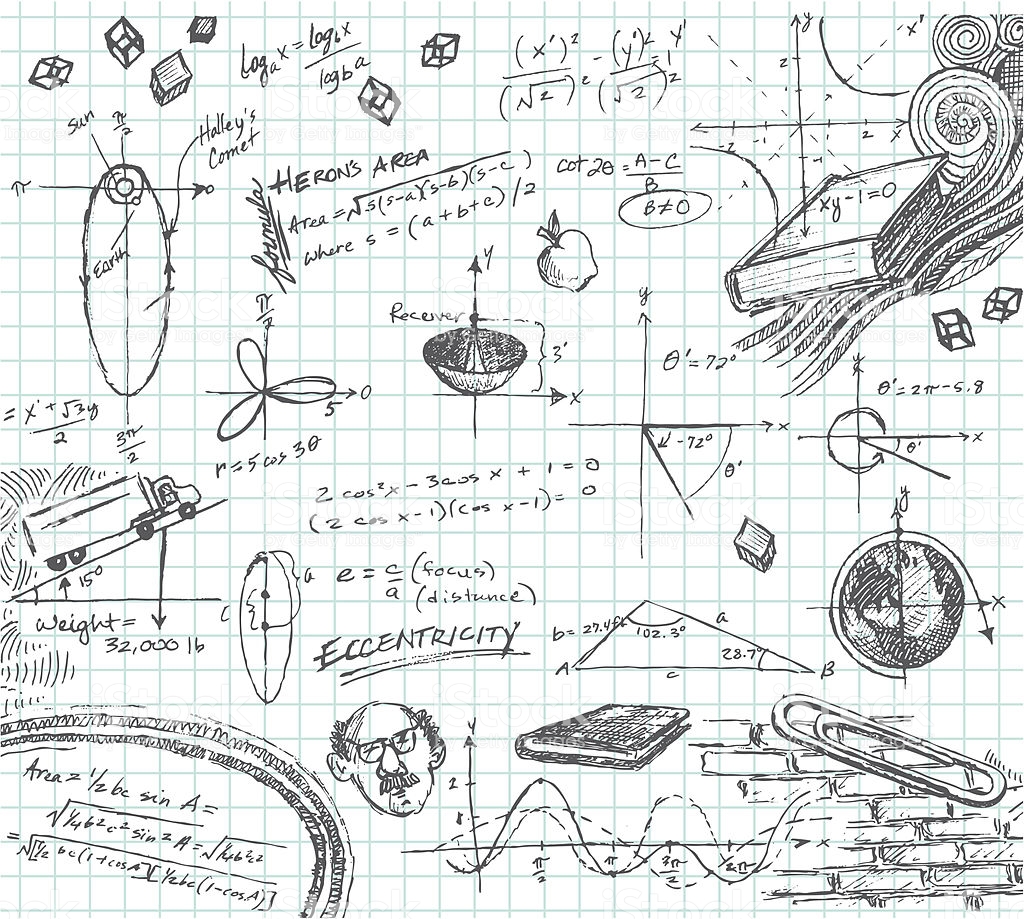 log_a x = log_b x / log_b a
(x')² / (√2)² - (y')² / (√2)² = 1
y'
x'
y
2
-2
2
x
xy-1=0
sun
π/2
Halley's
Comet
π
0
Earth
3π/2
HERON'S AREA
formula
Area = √s(s-a)(s-b)(s-c)
where s = (a+b+c)/2
cot 2θ = A-C / B
B≠0
y
Receiver
3'
x
π/2
5
0
r = 5 cos 3θ
= x' + √3y / 2
y
θ' = 72°
x
-72°
θ'
y
θ' = 2π-5.8
x
θ'
2 cos²x - 3cos x + 1 = 0
(2 cos x-1)(cos x-1) = 0
15°
weight =
32,000 lb
a
c
e = c/a (focus)
(distance)
ECCENTRICITY
b = 27.4ft
102.3°
a
28.7°
A
c
B
y
x
Area = ½ bc sin A =
√¼b²c² sin² A = √¼b²c²
= √[½ bc(1+cosA)][½bc(1-cosA)]
y
2
π/2
π
3π/2
2π
x
iStock
by Getty Images